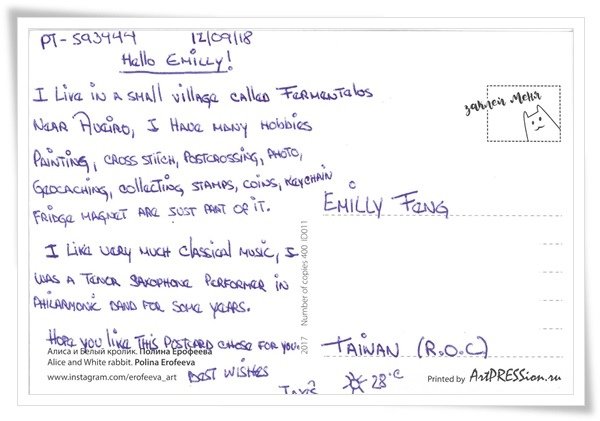 PT-593444 12/09/18
Hello Emilly!
I Live in a small village called Fermentelos
Near Aveiro, I Have many Hobbies
Painting, cross stitch, Postcrossing, Photo,
Geocaching, collecting, stamps, coins, keychain
Fridge magnet are just part of it.
I Like very much classical music, I
was a Tenor Saxophone Performer in
Philarmonic Band for some years.
Hope you like this Postcard chose for you.
Best wishes
28°C
Алиса и Белый кролик. Полина Ерофеева
Alice and White rabbit. Polina Erofeeva
www.instagram.com/erofeeva_art
2017 Number of copies 400 ID011
заклей меня
Emilly Feng
Taiwan (R.O.C)
Printed by ArtPRESSion.ru